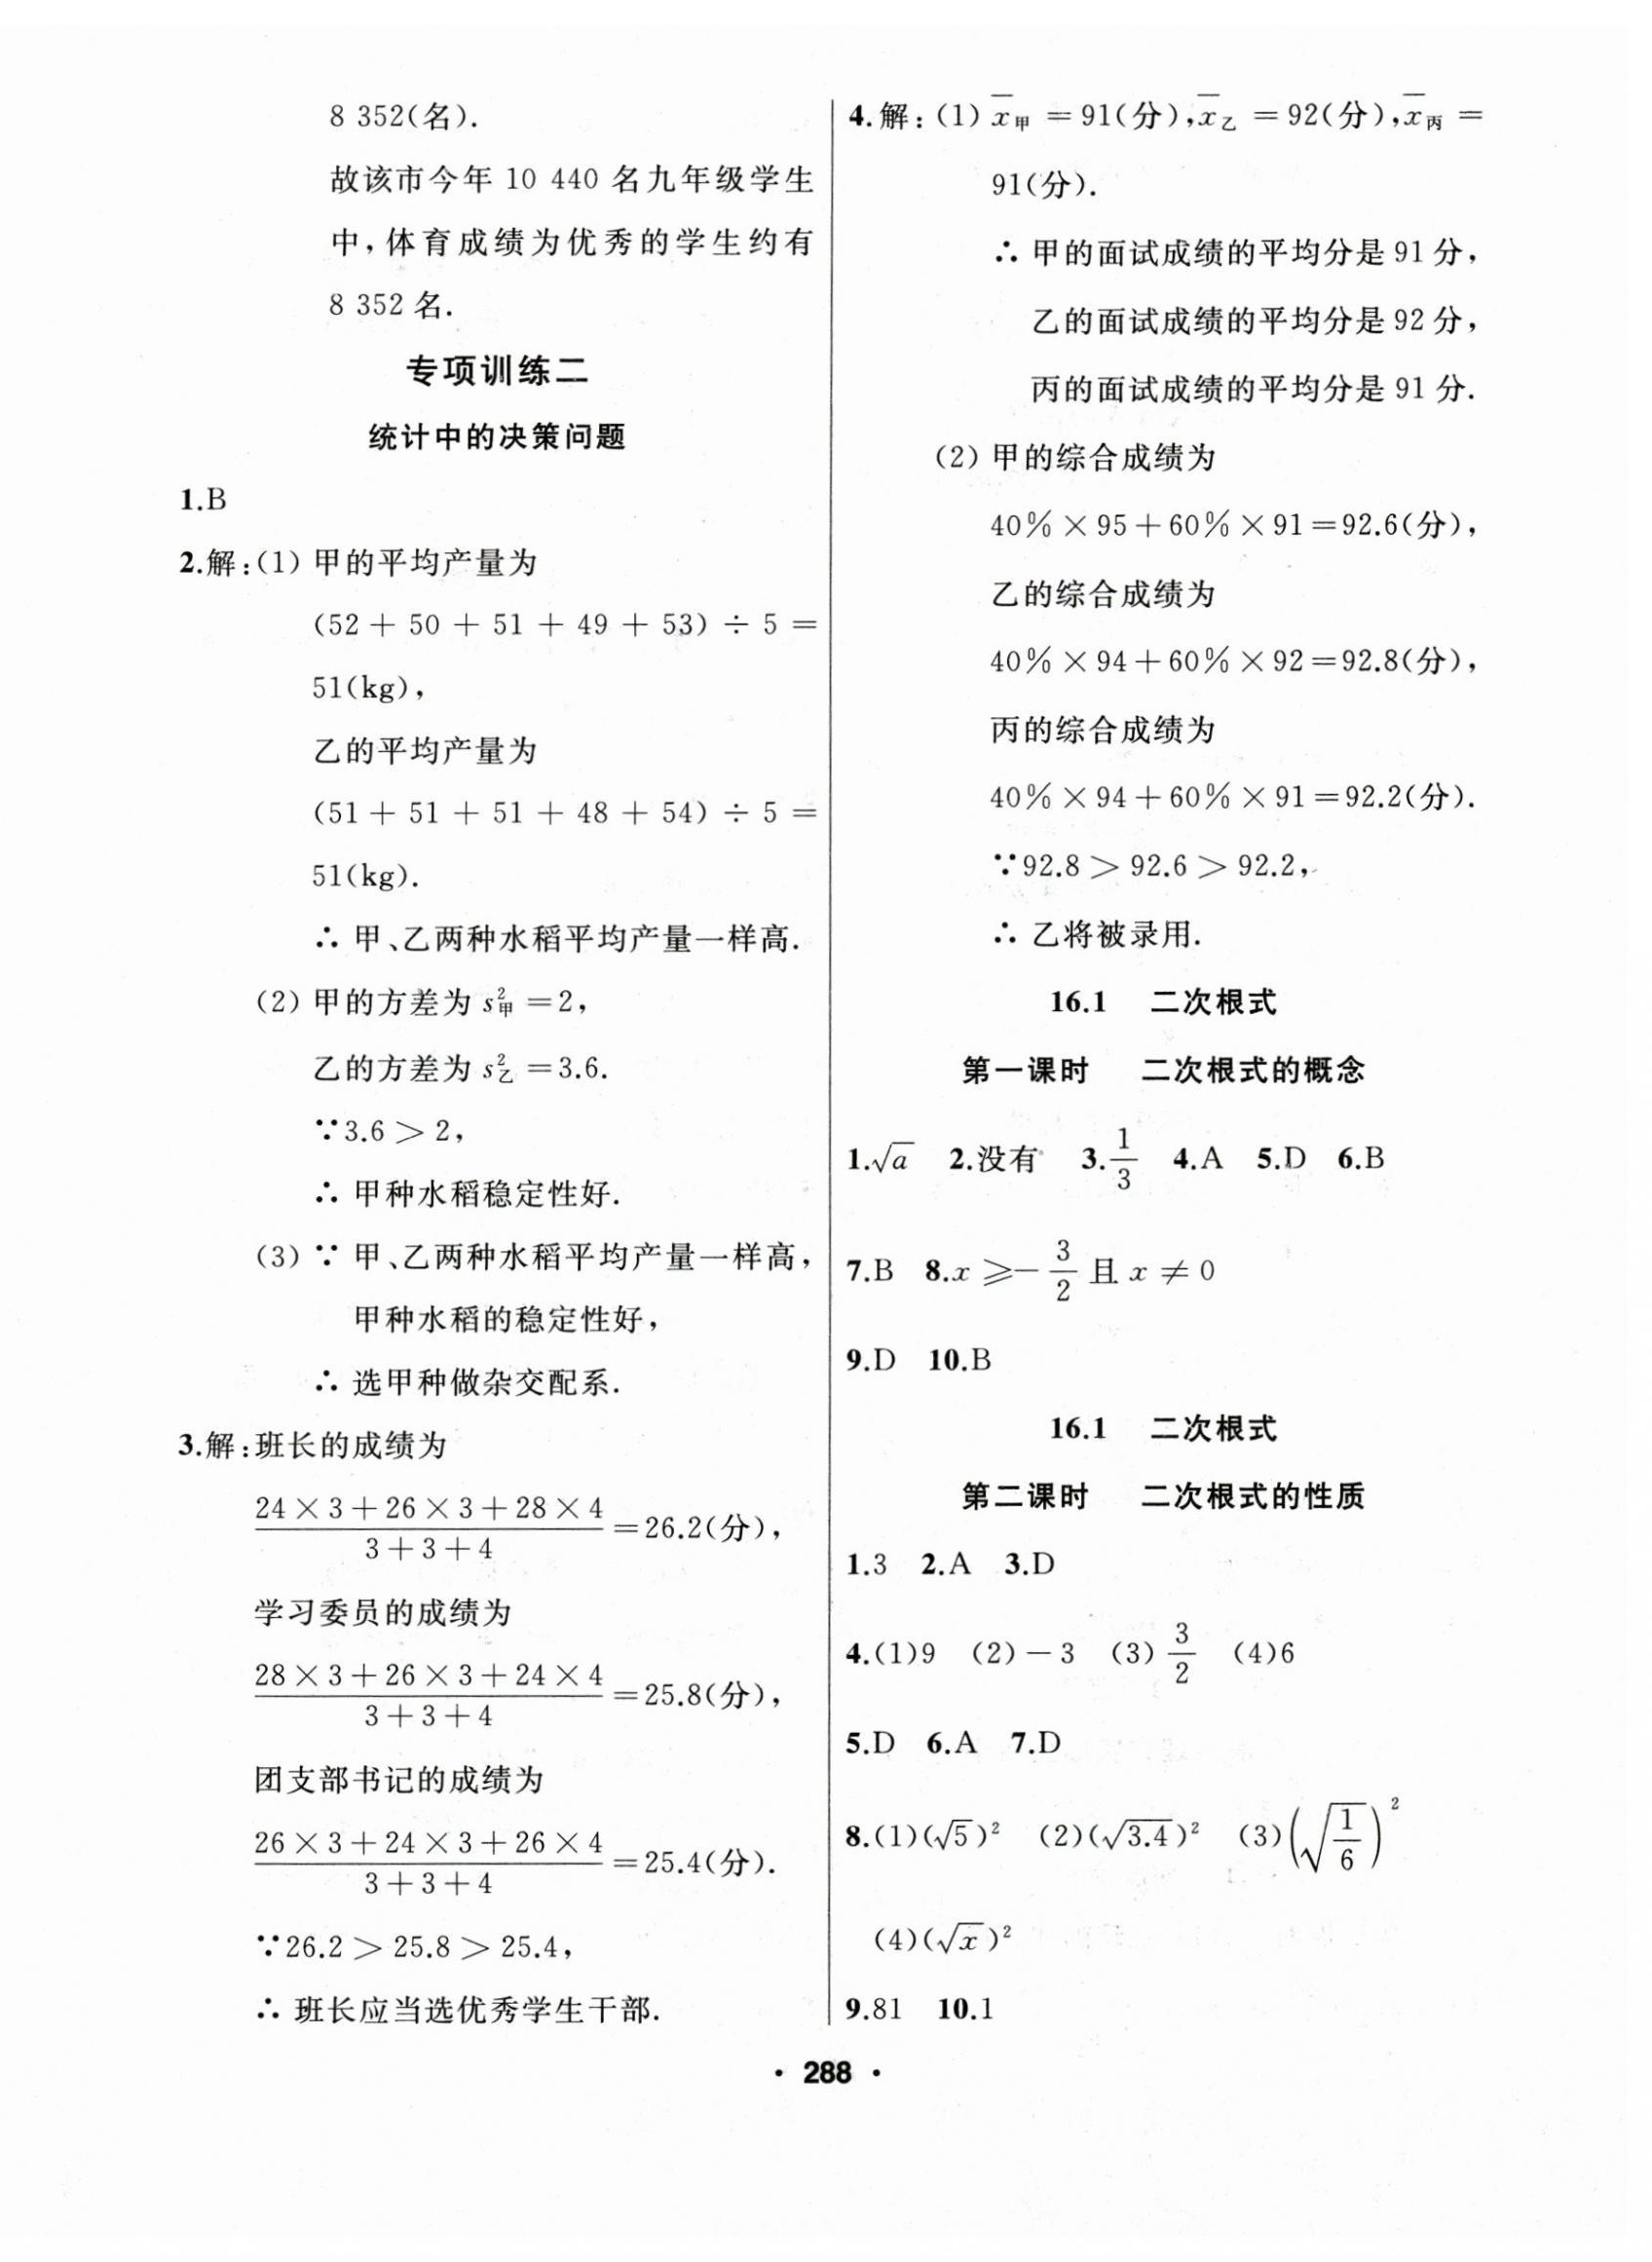 8 352(名).
故该市今年 10 440 名九年级学生
中,体育成绩为优秀的学生约有
8 352 名.
专项训练二
统计中的决策问题
1.B
2.解:(1) 甲的平均产量为
(52 + 50 + 51 + 49 + 53) ÷ 5 =
51(kg),
乙的平均产量为
(51 + 51 + 51 + 48 + 54) ÷ 5 =
51(kg).
∴ 甲、乙两种水稻平均产量一样高.
(2) 甲的方差为 s²甲 = 2,
乙的方差为 s²乙 = 3.6.
∵ 3.6 > 2,
∴ 甲种水稻稳定性好.
(3) ∵ 甲、乙两种水稻平均产量一样高,
甲种水稻的稳定性好,
∴ 选甲种做杂交配系.
3.解:班长的成绩为
(24 × 3 + 26 × 3 + 28 × 4)/(3 + 3 + 4) = 26.2(分),
学习委员的成绩为
(28 × 3 + 26 × 3 + 24 × 4)/(3 + 3 + 4) = 25.8(分),
团支部书记的成绩为
(26 × 3 + 24 × 3 + 26 × 4)/(3 + 3 + 4) = 25.4(分).
∵ 26.2 > 25.8 > 25.4,
∴ 班长应当选优秀学生干部.
4.解:(1) x̄甲 = 91(分),x̄乙 = 92(分),x̄丙 =
91(分).
∴ 甲的面试成绩的平均分是 91 分,
乙的面试成绩的平均分是 92 分,
丙的面试成绩的平均分是 91 分.
(2) 甲的综合成绩为
40% × 95 + 60% × 91 = 92.6(分),
乙的综合成绩为
40% × 94 + 60% × 92 = 92.8(分),
丙的综合成绩为
40% × 94 + 60% × 91 = 92.2(分).
∵ 92.8 > 92.6 > 92.2,
∴ 乙将被录用.
16.1 二次根式
第一课时 二次根式的概念
1.√a 2.没有 3.1/3 4.A 5.D 6.B
7.B 8.x ≥ −3/2 且 x ≠ 0
9.D 10.B
16.1 二次根式
第二课时 二次根式的性质
1.3 2.A 3.D
4.(1)9 (2)−3 (3)3/2 (4)6
5.D 6.A 7.D
8.(1)(√5)² (2)(√3.4)² (3)(√(1/6))²
(4)(√x)²
9.81 10.1
· 288 ·